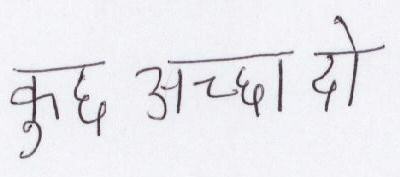 कुछ अच्छा दो